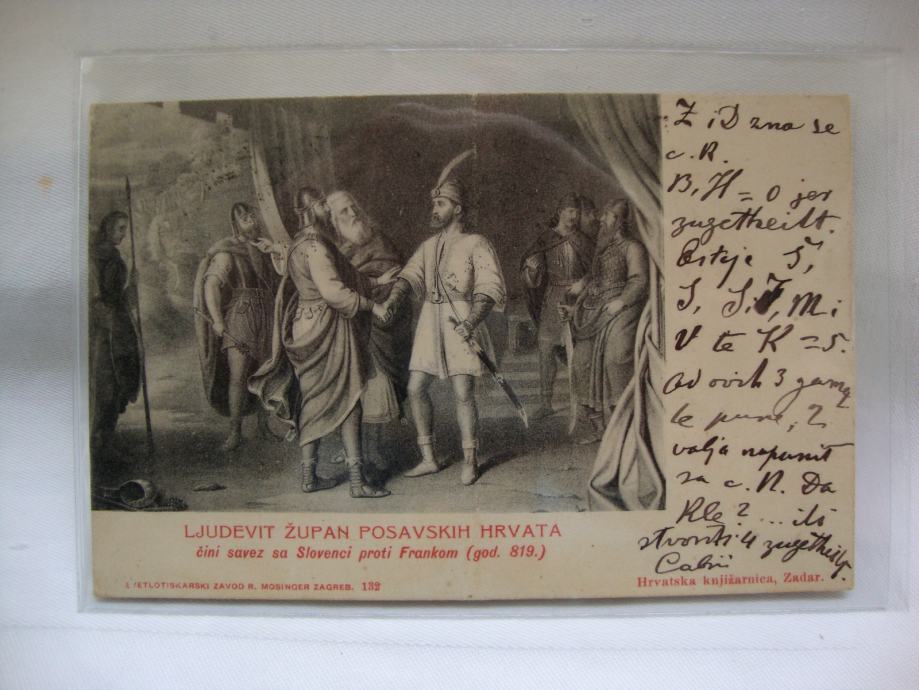 LJUDEVIT ŽUPAN POSAVSKIH HRVATA
čini savez sa Slovenci proti Frankom (god. 819.)
SVJETLOTISKARSKI ZAVOD R. MOSINGER ZAGREB. 132
Hrvatska knjižarnica, Zadar.
Z i D zna se
c. R.
B, H = 0 jer
zugetheilt.
Š,
S, M i
V te K = 5.
od ovih 3
pune, 2
valja napunit
sa c. R. Da
kle ? ... ili
stvoriti 4